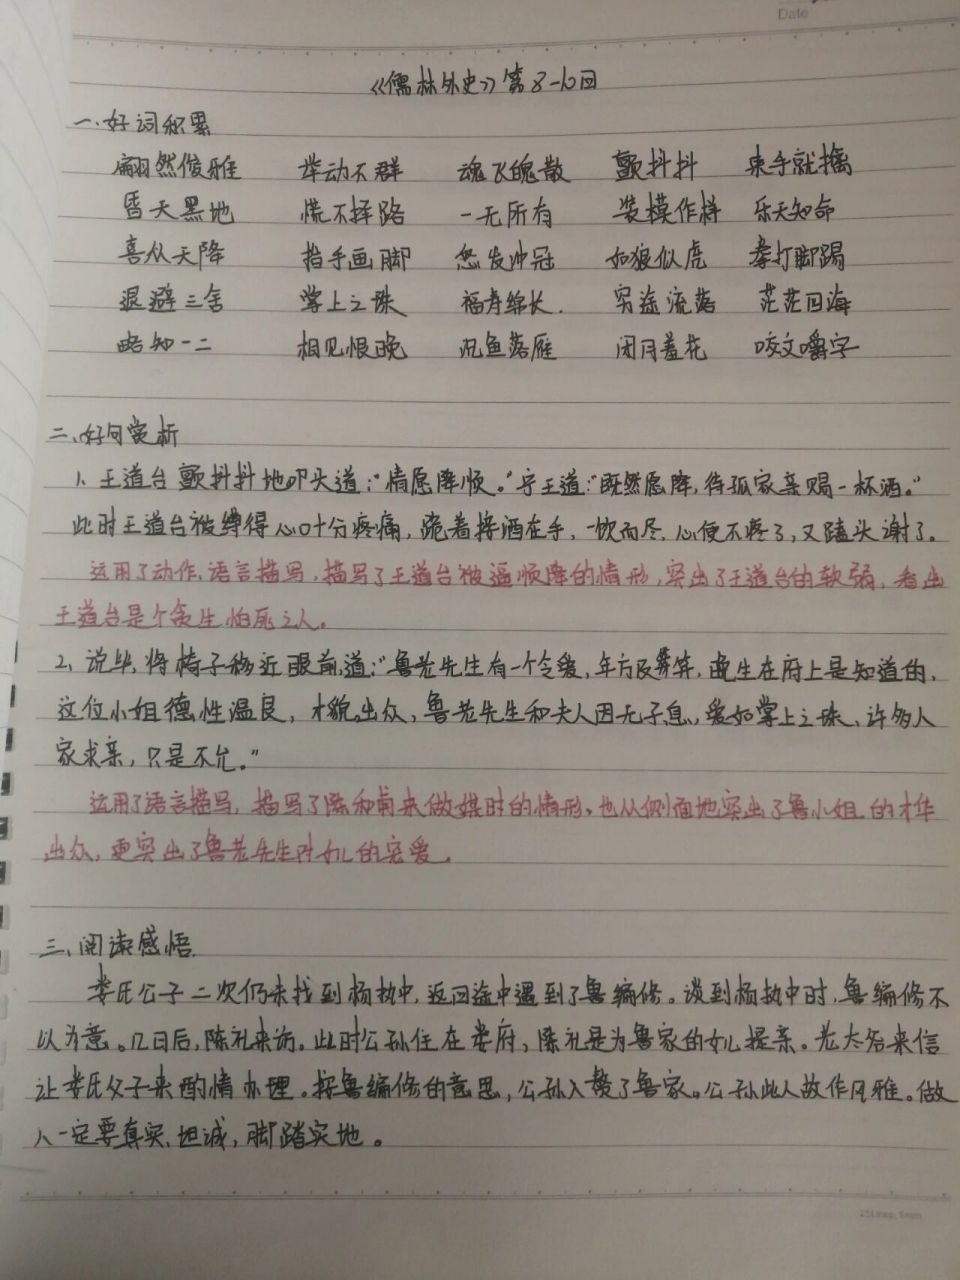 Date
《儒林外史》第8-10回
一.好词积累
翩然俊雅 举动不群 魂飞魄散 颤抖抖 束手就擒
昏天黑地 慌不择路 一无所有 装模作样 乐天知命
喜从天降 指手画脚 怒发冲冠 如狼似虎 拳打脚踢
退避三舍 掌上之珠 福寿绵长. 穷途流落 茫茫四海
略知一二 相见恨晚 沉鱼落雁 闭月羞花 咬文嚼字
二、好句赏析
1、王道台颤抖抖地叩头道:"情愿降顺。"宁王道:"既然愿降,待孤家亲赐一杯酒。"
此时王道台被缚得心口十分疼痛,跪着接酒在手,一饮而尽,心便不疼了,又磕头谢了。
运用了动作、语言描写,描写了王道台被逼顺降的情形,突出了王道台的软弱,看出
王道台是个贪生怕死之人。
2、说毕,将椅子移近眼前,道:"鲁老先生有一个令爱,年方及笄,晚生在府上是知道的,
这位小姐德性温良,才貌出众,鲁老先生和夫人因无子息,爱如掌上之珠,许多人
家求亲,只是不允。"
运用了语言描写,描写了陈和甫来做媒时的情形。也从侧面地突出了鲁小姐的才华
出众,更突出了鲁老先生对女儿的宠爱。
三、阅读感悟
娄氏公子二次仍未找到杨执中,返回途中遇到了鲁编修。谈到杨执中时,鲁编修不
以为意。几日后,陈礼来访。此时公孙住在娄府,陈礼是为鲁家的女儿提亲。老太爷来信
让娄氏父子来酌情办理。按鲁编修的意思,公孙入赘了鲁家。公孙此人故作风雅。做
人一定要真实、坦诚,脚踏实地。